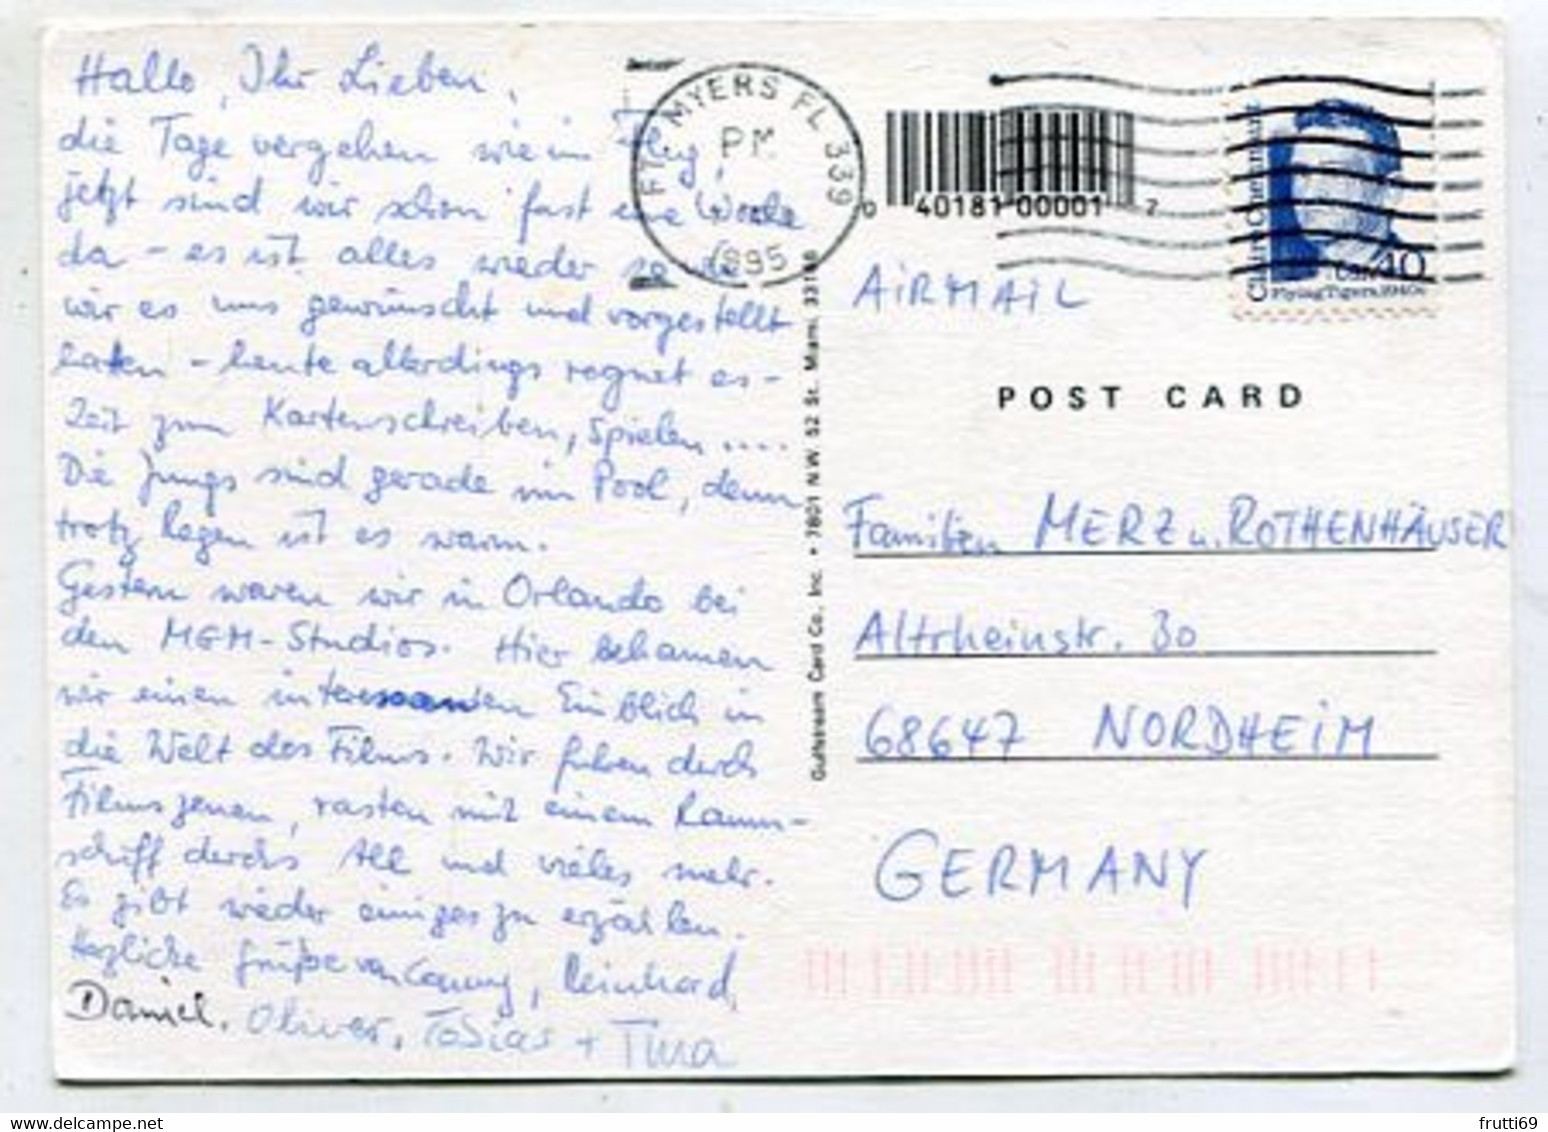 Hallo, Ihr Lieben,
die Tage vergehen wie im Flug,
jetzt sind wir schon fast eine Woche
da - es ist alles wieder so wie
wir es uns gewünscht und vorgestellt
hatten - heute allerdings regnet es -
Zeit zum Kartenschreiben, Spielen ....
Die Jungs sind gerade im Pool, denn
trotz Regen ist es warm.
Gestern waren wir in Orlando bei
den MGM-Studios. Hier bekamen
wir einen interessanten Einblick in
die Welt des Films. Wir fuhren durch
Filmszenen, rasten mit einem Raum-
schiff durchs All und vieles mehr.
Es gibt wieder einiges zu erzählen.
Herzliche Grüße von Conny, Reinhard,
Daniel, Oliver, Tobias + Tina
FT. MYERS FL 339
PM
1995
0 40181 00001 7
Claire Chennault
40
Flying Tigers, 1940s
AIRMAIL
POST CARD
Gulfstream Card Co., Inc. • 3801 N.W. 52 St. Miami, 33166
Familien MERZ u. ROTHENHÄUSER
Altrheinstr. 30
68647 NORDHEIM
GERMANY
frutti69